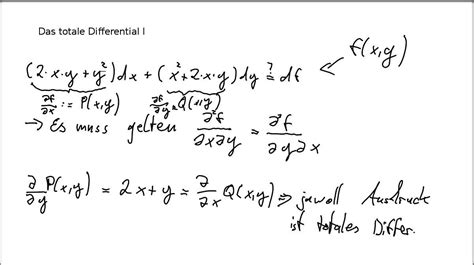 Das totale Differential I
f(x,y)
(2·x·y+y²)dx + (x²+2·x·y)dy ≟ df
∂f/∂x := P(x,y) ∂f/∂y = Q(x,y)
→ Es muss gelten ∂²f/∂x∂y = ∂²f/∂y∂x
∂/∂y P(x,y) = 2x+y = ∂/∂x Q(x,y) ⇒ jawoll Ausdruck
ist totales Differ.